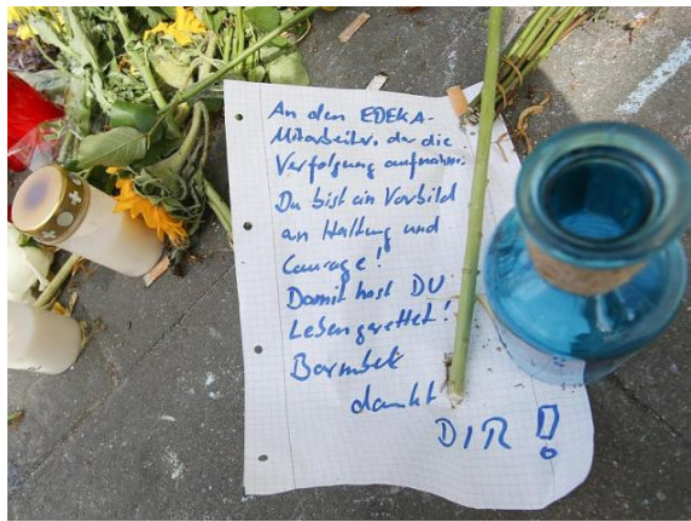 An den EDEKA-
Mitarbeiter, der die
Verfolgung aufnahm.
Du bist ein Vorbild
an Haltung und
Courage!
Damit hast DU
Leben gerettet!
Barmbek
dankt
DIR!